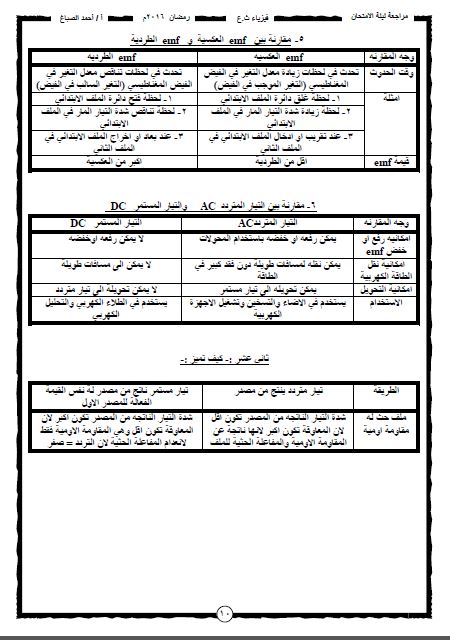 مراجعة ليلة الامتحان
فيزياء ث.ع
رمضان ٢٠١٦م
أ / أحمد الصباغ
٥- مقارنة بين emf العكسية و emf الطردية
وجه المقارنه
emf العكسيه
emf الطرديه
وقت الحدوث
تحدث في لحظات زيادة معدل التغير في الفيض
المغناطيسي (التغير الموجب في الفيض)
تحدث في لحظات تناقص معدل التغير في
الفيض المغناطيسي (التغير السالب في الفيض)
امثلة
١- لحظة غلق دائرة الملف الابتدائي
١- لحظة فتح دائرة الملف الابتدائي
٢- لحظة زيادة شدة التيار المار في الملف
الابتدائي
٢- لحظة تناقص شدة التيار المار في الملف
الابتدائي
٣- عند تقريب او ادخال الملف الابتدائي في
الملف الثاني
٣- عند بعاد او اخراج الملف الابتدائي في
الملف الثاني
قيمة emf
اقل من الطردية
اكبر من العكسية
٦- مقارنة بين التيار المتردد AC والتيار المستمر DC
وجه المقارنه
التيار المترددAC
التيار المستمر DC
امكانيه رفع او
خفض emf
يمكن رفعه او خفضه باستخدام المحولات
لا يمكن رفعه اوخفضه
امكانيه نقل
الطاقة الكهربية
يمكن نقله لمسافات طويلة دون فقد كبير في
الطاقة
لا يمكن الى مسافات طويلة
امكانية التحويل
يمكن تحويله الى تيار مستمر
لا يمكن تحويلة الى تيار متردد
الاستخدام
يستخدم في الاضاء والتسخين وتشغيل الاجهزة
الكهربية
يستخدم في الطلاء الكهربي والتحليل
الكهربي
ثاني عشر :- كيف تميز :-
الطريقة
تيار متردد ينتج من مصدر
تيار مستمر ناتج من مصدر له نفس القيمة
الفعالة للمصدر الاول
ملف حث له
مقاومة اومية
شدة التيار الناتجه من المصدر تكون اقل
لان المعاوقة تكون اكبر لانها ناتجة عن
المقاومة الاومية والمفاعلة الحثية للملف
شدة التيار الناتجه من المصدر تكون اكبر لان
المعاوقة تكون اقل وهي المقاومة الاومية فقط
لانعدام المفاعلة الحثية لان التردد = صفر
١٠